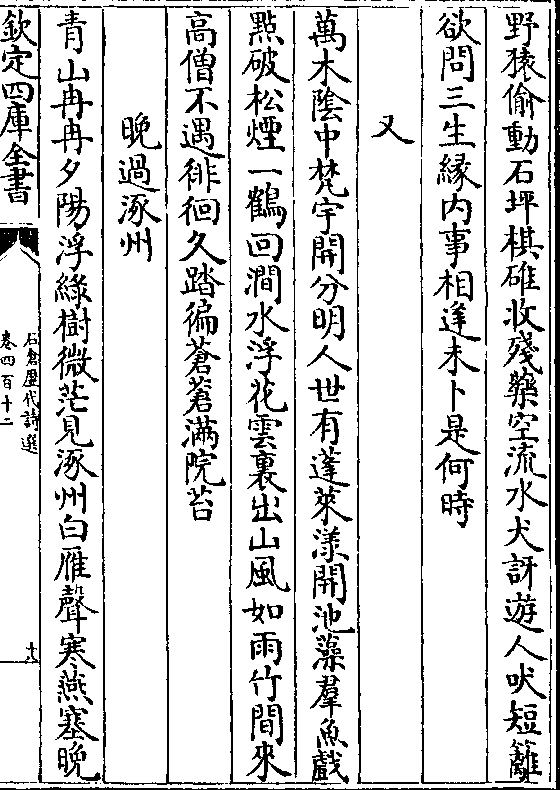 野猿偷動石坪棋碓收殘藥空流水犬訝遊人吠短籬
欲問三生縁内事相逢未卜是何時
又
萬木陰中梵宇開分明人世有蓬萊漾開池藻羣魚戲
點破松煙一鶴回澗水浮花雲裏出山風如雨竹間來
高僧不遇徘徊久踏徧蒼蒼滿院苔
晚過涿州
青山冉冉夕陽浮綠樹微茫見涿州白雁聲寒燕塞晚
欽定四庫全書
石倉歷代詩選
卷四百十二
十八